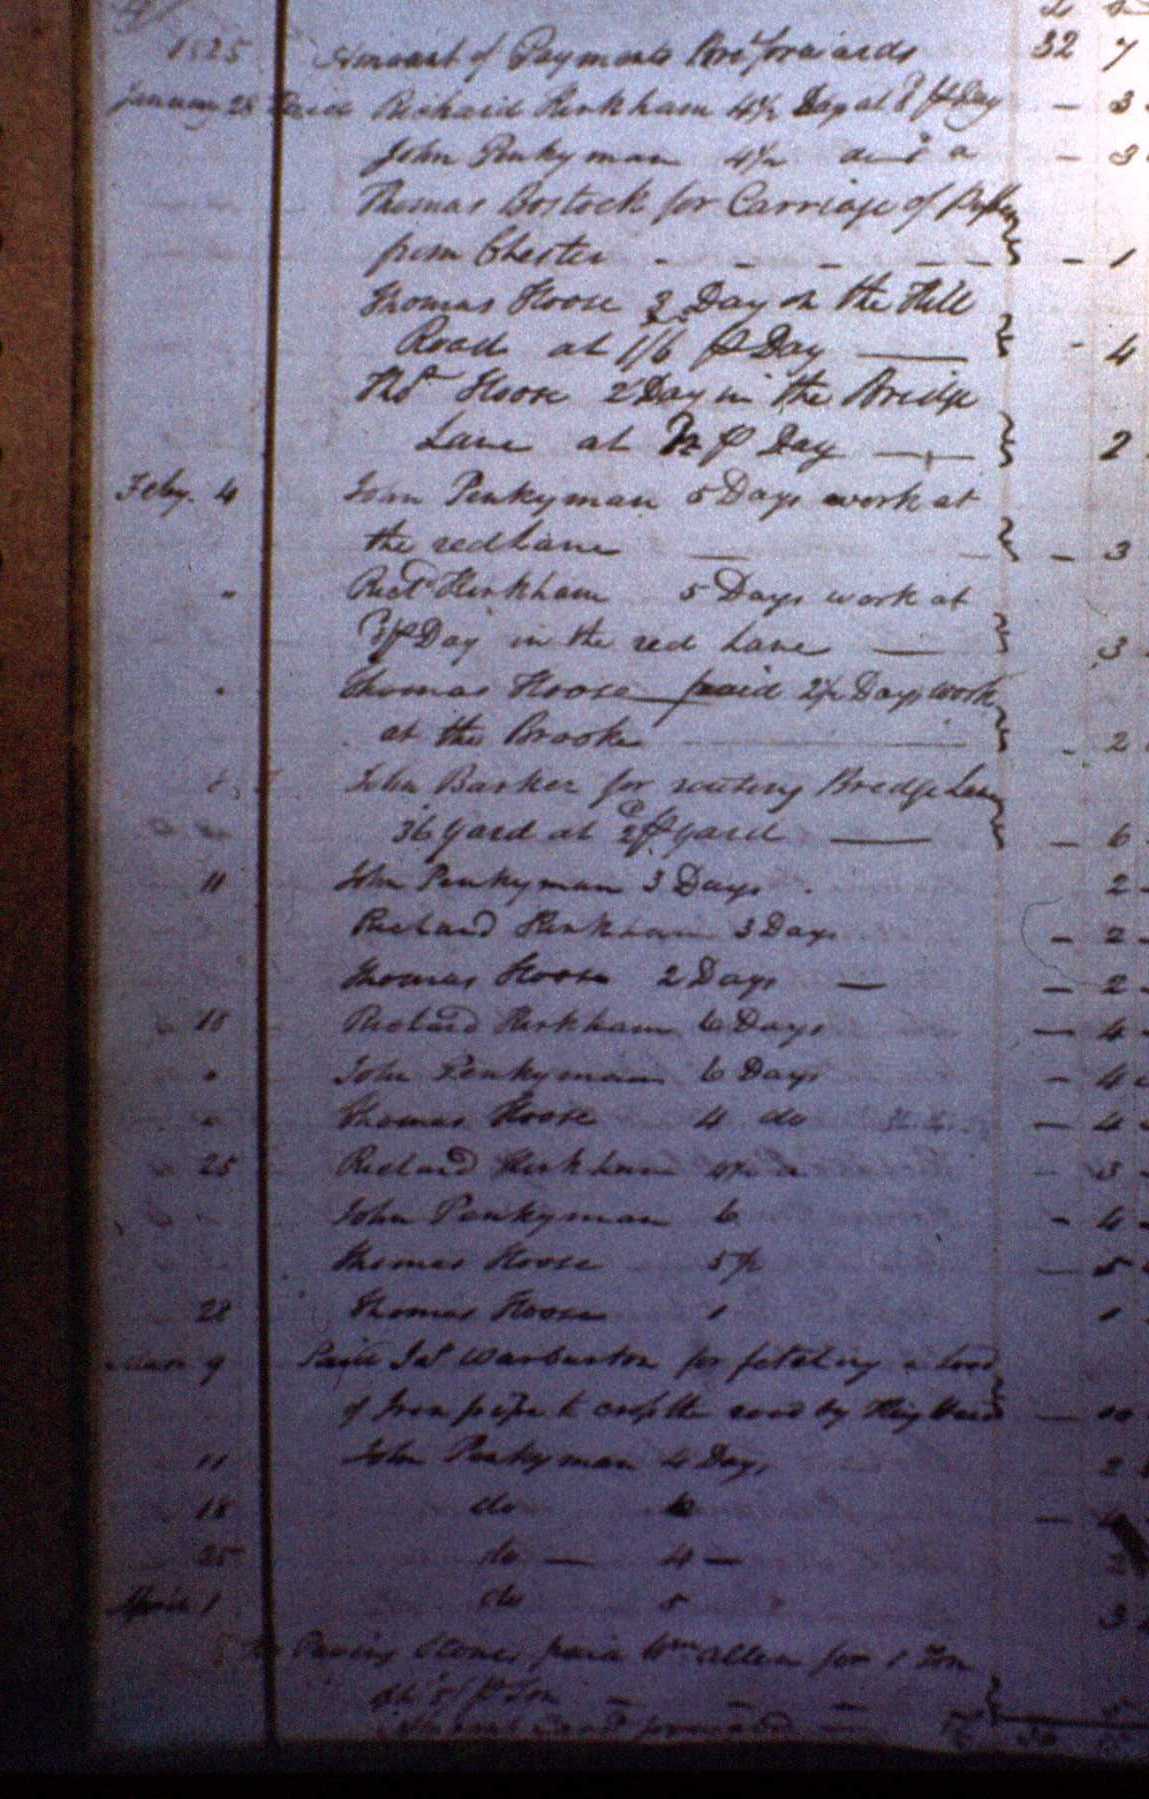 £ s
1825 Amount of Payments Bro.t forwards 32 7
January 28 Paid Richard Kirkham 4½ Day at 8 p Day - 3
John Penkyman 4½ - 3
Thomas Bostock for Carriage of
from Chester - - - - - - 1
Thomas Hoose 3 Day on the Hill
Road at 1/6 p Day - 4
Thos Hoose 2 Day in the Bridge
Lane at p Day 2
Feby. 4 John Penkyman 5 Days work at
the red Lane - 3
" Richd Kirkham 5 Days work at
8 p Day in the red Lane 3
" Thomas Hoose paid 2½ Days work
at the Brooke - 2
John Barker for Bridge Lane
36 yard at 2d p yard - 6
11 John Penkyman 3 Days 2
Richard Kirkham 3 Days - 2
Thomas Hoose 2 Days - 2
18 Richard Kirkham 6 Days - 4
" John Penkyman 6 Days - 4
" Thomas Hoose 4 do - 4
25 Richard Kirkham 4½ - 3
John Penkyman 6 - 4
Thomas Hoose 5½ - 5
28 Thomas Hoose 1 1
9 Paid Jas Warburton for fetching a load
of Iron the road by - 10
11 John Penkyman 4 Days 2
18 do 6 - 4
25 do - 4 - 2
April 1 do 5 3
Paving Stones paid Wm Allen for 1 Ton
p Ton - - -